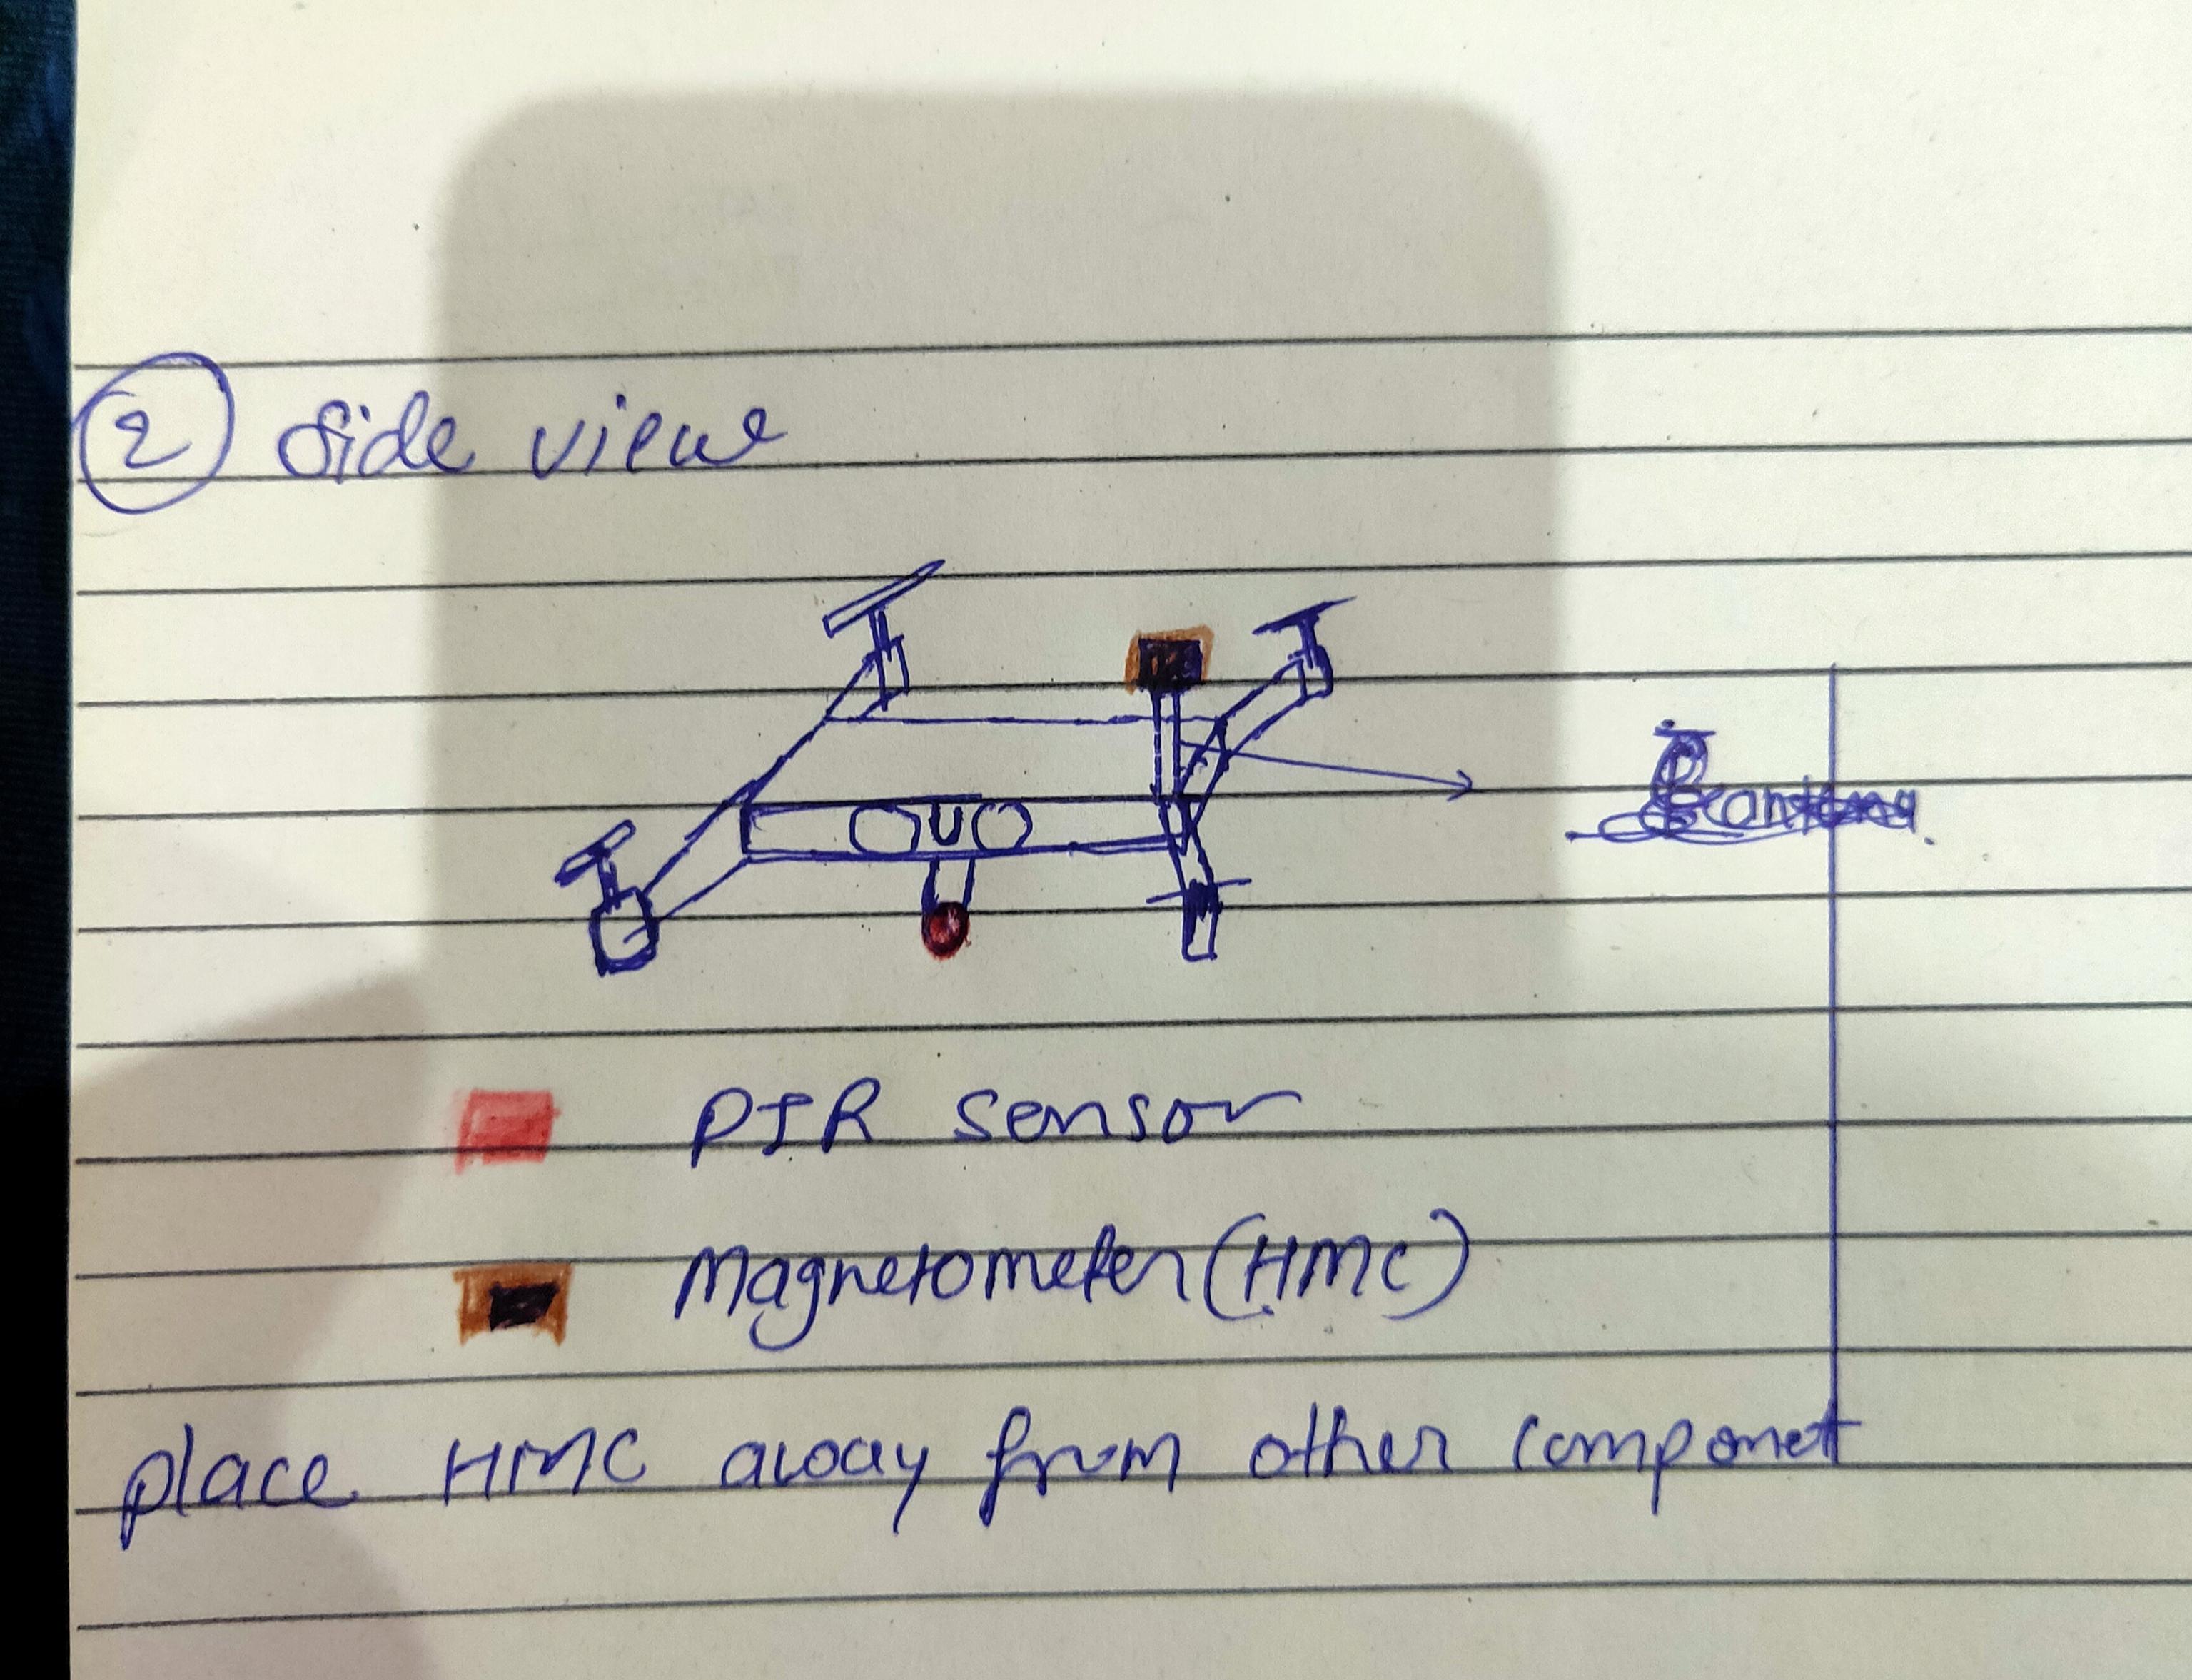 2 Side view
U
PIR sensor
Magnetometer (HMC)
place HMC away from other componet